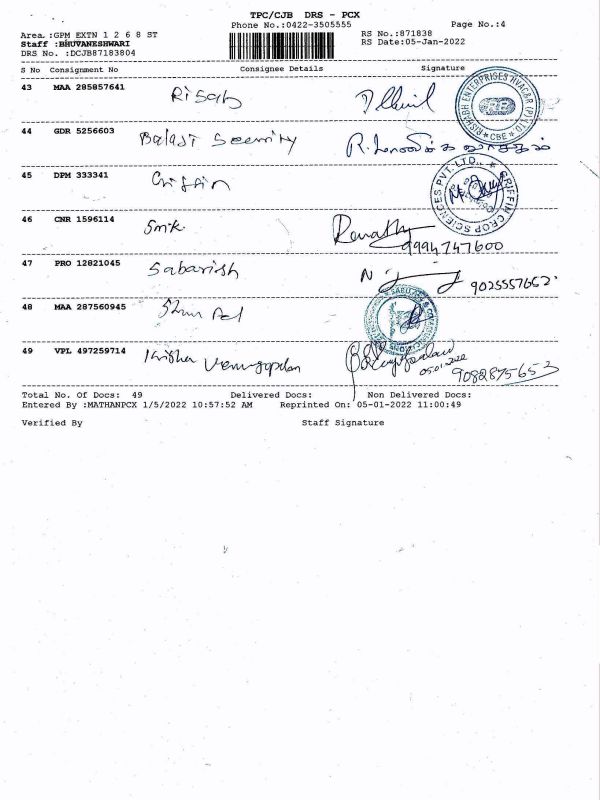 TPC/CJB DRS - PCX
Phone No.:0422-3505555
Page No.:4
Area :GPM EXTN 1 2 6 8 ST
RS No.:871838
Staff :BHUVANESHWARI
RS Date:05-Jan-2022
DRS No. :DCJB87183804
S No Consignment No Consignee Details Signature
43 MAA 285857641 Risab
RISHABH ENTERPRISES HVAC&R (P) LTD. CBE
44 GDR 5256603 Balaji Security
45 DPM 333341 Griffin
GRIFFIN CROP SCIENCES PVT. LTD.
46 CNR 1596114 Smk Revathy
9994747600
47 PRO 12821045 Sabarish N
9025557652
48 MAA 287560945
49 VPL 497259714 Krishna Venugopalan
05.01.2022
9082875653
Total No. Of Docs: 49 Delivered Docs: Non Delivered Docs:
Entered By :MATHANPCX 1/5/2022 10:57:52 AM Reprinted On: 05-01-2022 11:00:49
Verified By Staff Signature